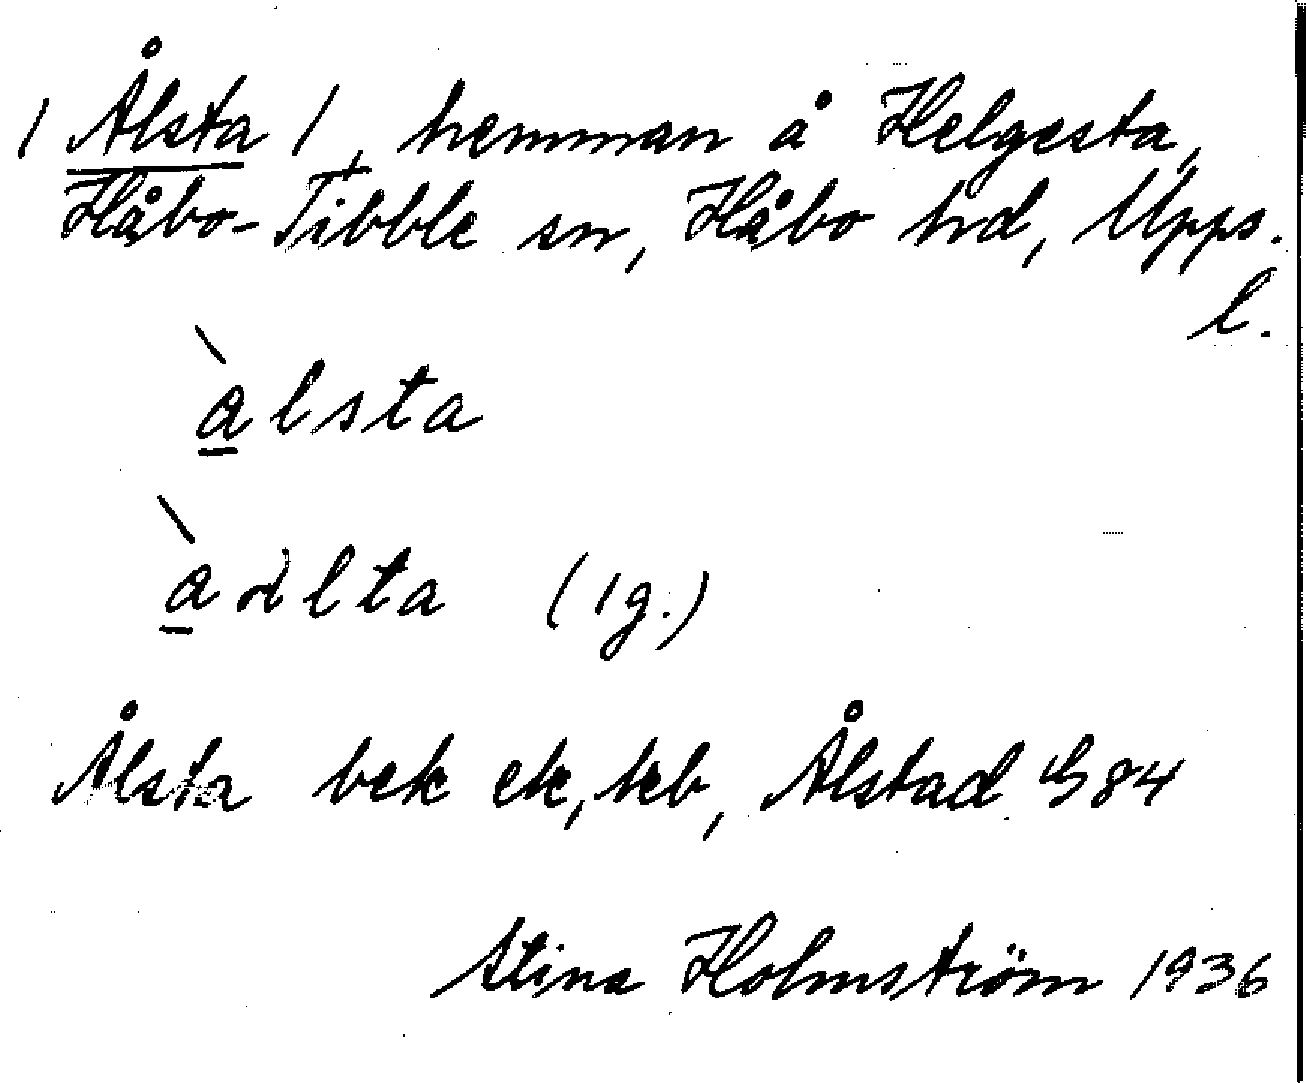 / Ålsta /, hemman å Helgesta,
Håbo-Tibble sn, Håbo hd, Upps.
l.
àlsta
(1g.)
Ålsta bek ek, kb, Ålstad G84
Stina Holmström 1936